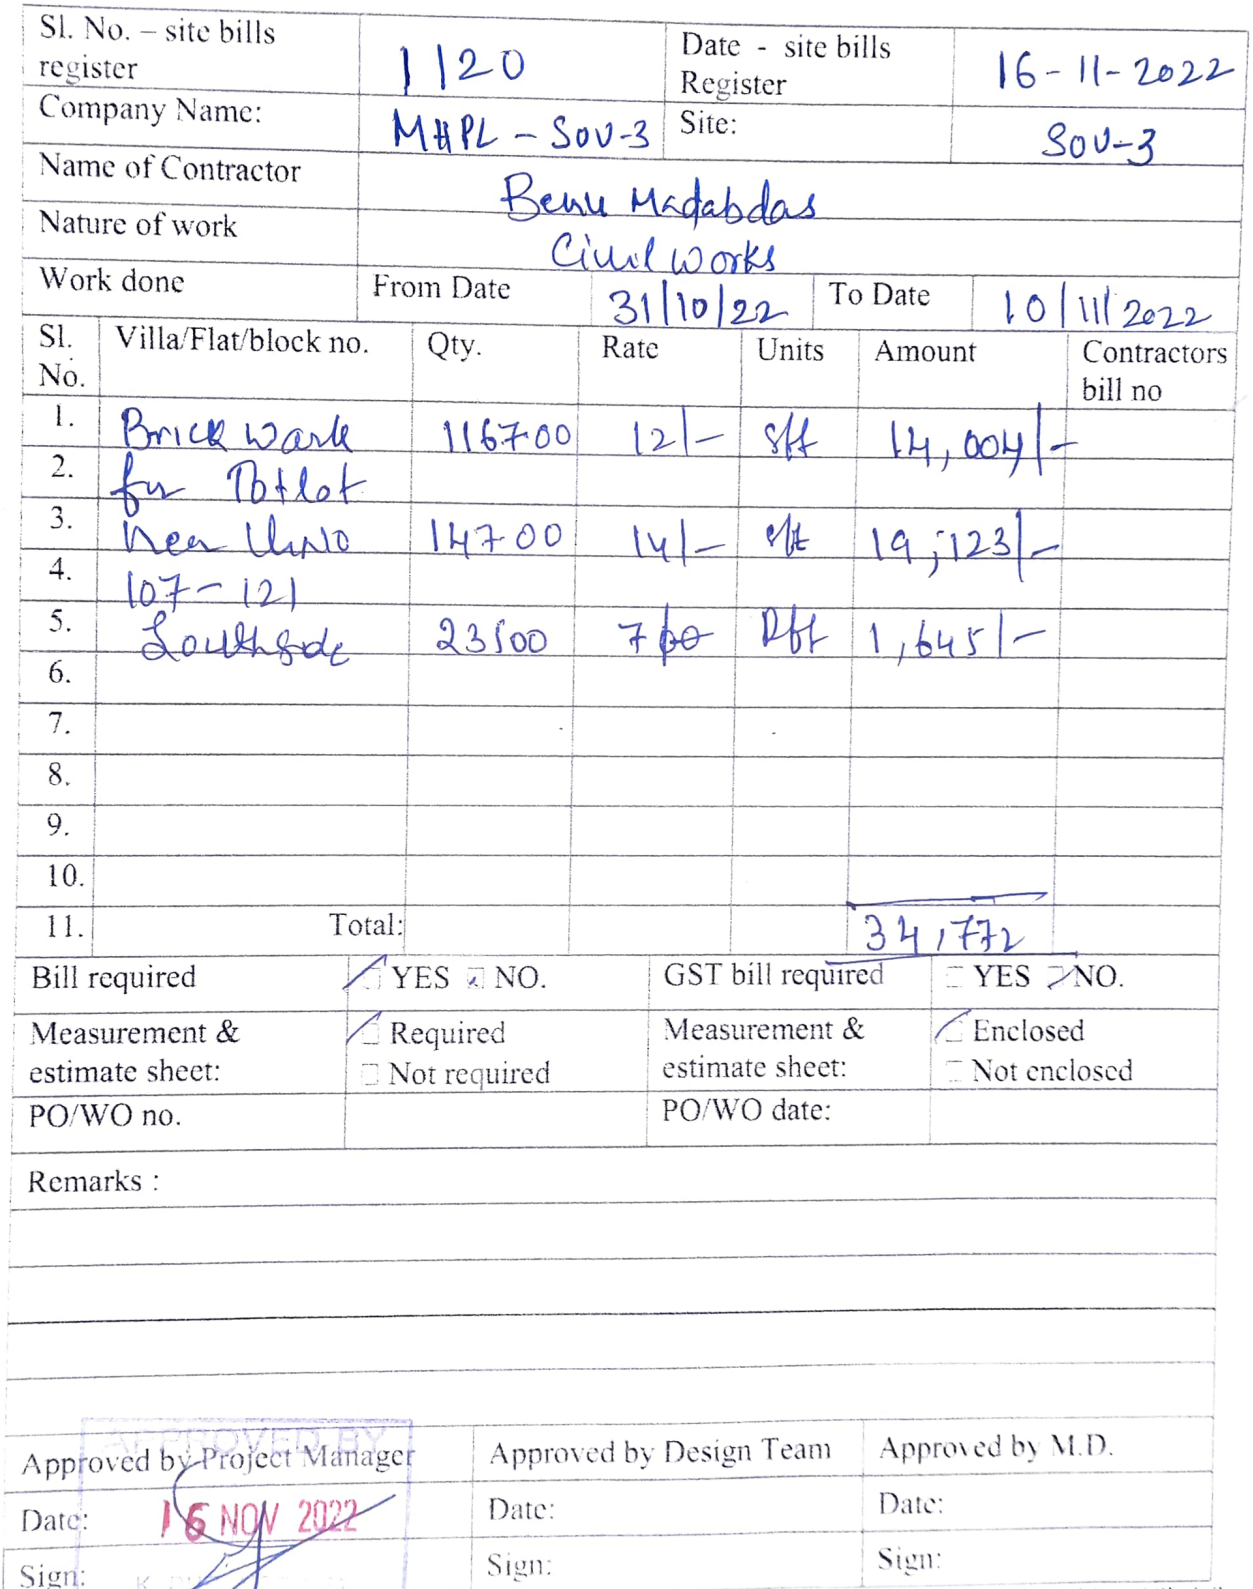 Sl. No. – site bills register 1120 Date - site bills Register 16-11-2022
Company Name: MHPL - SOV-3 Site: SOV-3
Name of Contractor Benu Madabdas
Nature of work Civil works
Work done From Date 31/10/22 To Date 10/11/2022
Sl. No. Villa/Flat/block no. Qty. Rate Units Amount Contractors bill no
1. Brick work 1167.00 12/- sft 14,004/-
2. for Totlot
3. near 147.00 14/- sft 19,123/-
4. 107-121
5. Southside 235.00 7 Rft 1,645/-
6.
7.
8.
9.
10.
11. Total: 34,772
Bill required YES NO. GST bill required YES NO.
Measurement & estimate sheet: Required Measurement & estimate sheet: Enclosed
Not required Not enclosed
PO/WO no. PO/WO date:
Remarks :
APPROVED BY
Approved by Project Manager Approved by Design Team Approved by M.D.
Date: 16 NOV 2022 Date: Date:
Sign: Sign: Sign: